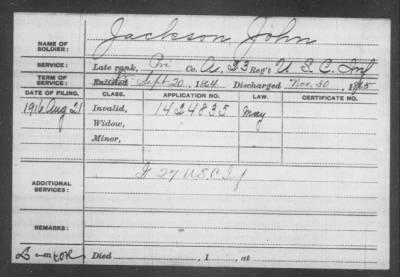 NAME OF SOLDIER: Jackson, John
SERVICE: Late rank, Pri Co. A, 33 Reg't U. S. C. Inf
TERM OF SERVICE: Enlisted Sept. 20, 1864 Discharged Nov. 30, 1865
DATE OF FILING. CLASS. APPLICATION NO. LAW. CERTIFICATE NO.
1916 Aug 21 Invalid, 1424835 May
Widow,
Minor,
ADDITIONAL SERVICES: 27 U.S.C. Inf
REMARKS:
Died , 1 , at